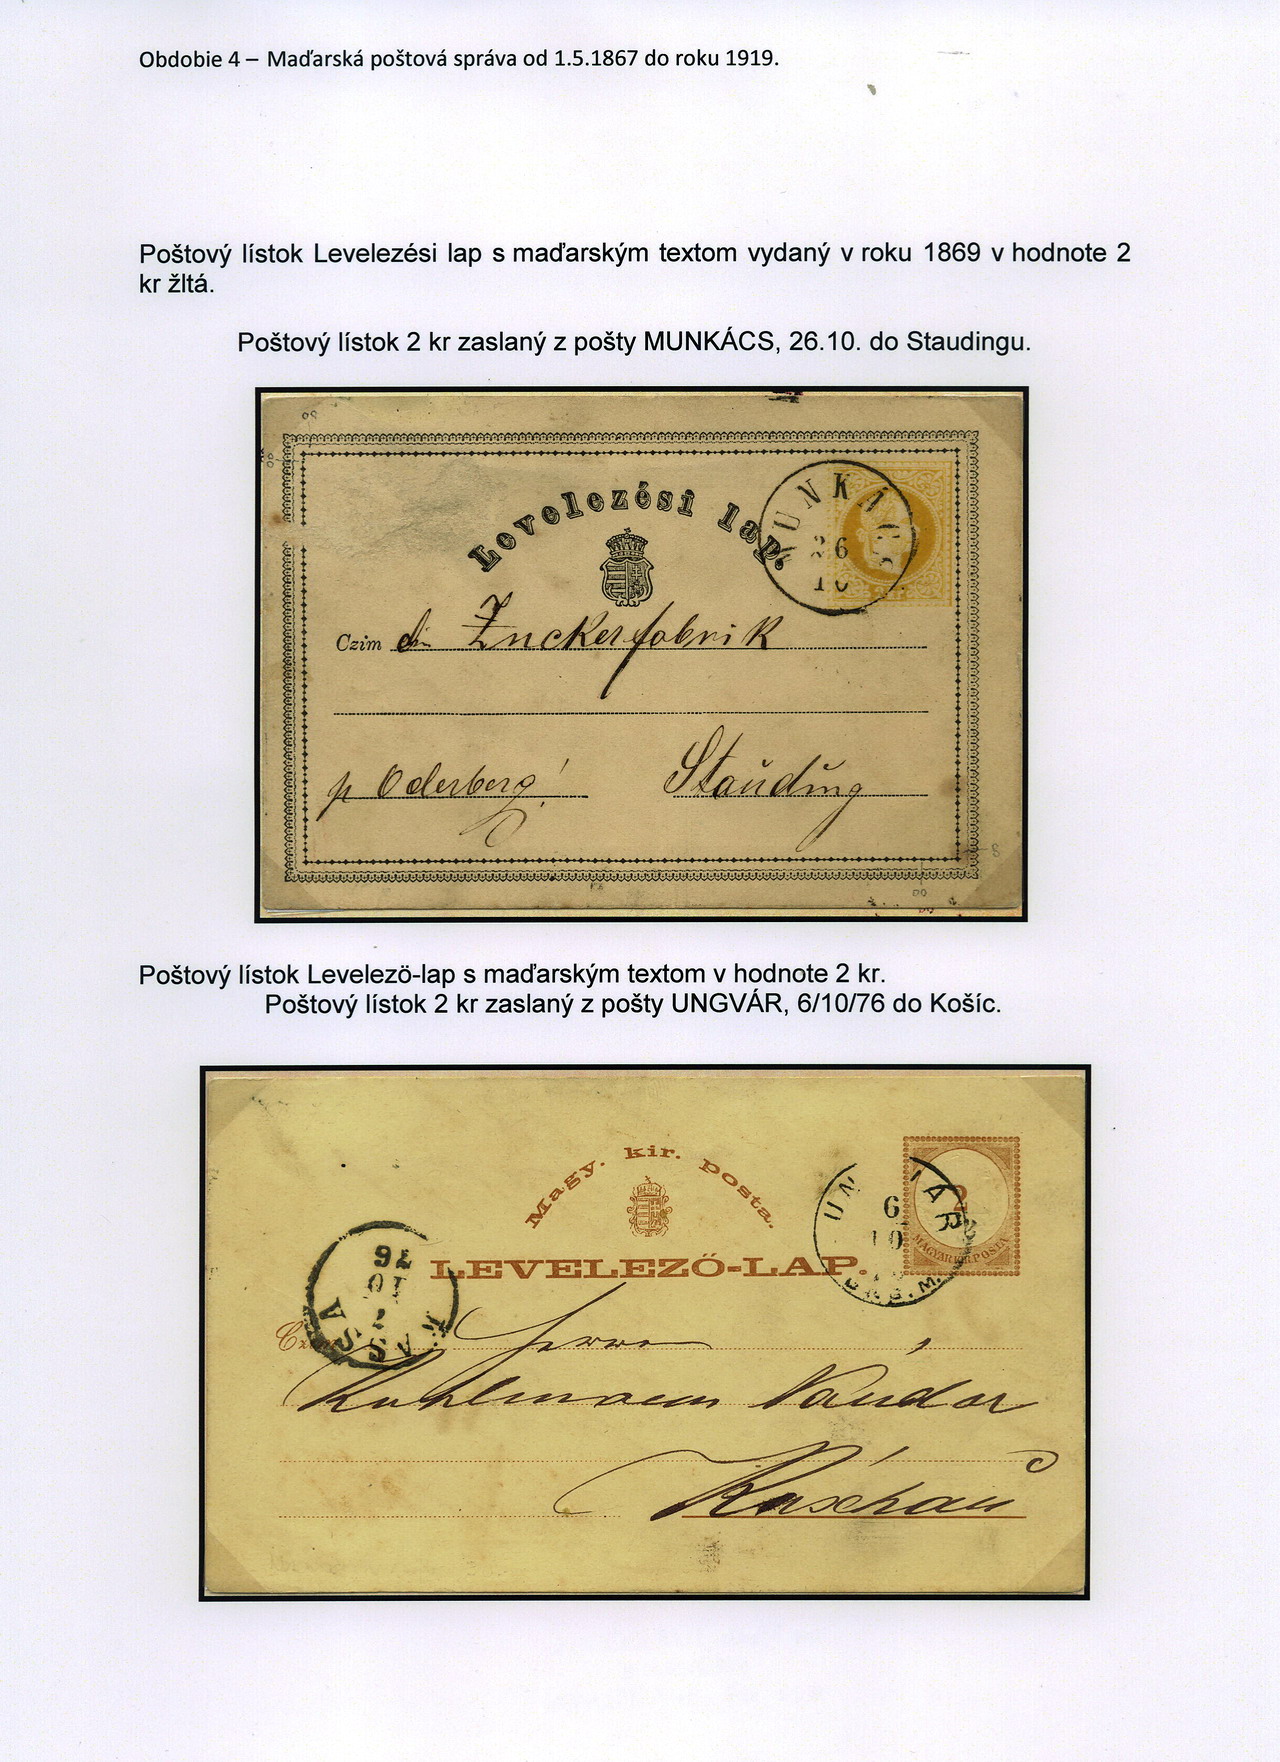 Obdobie 4 – Maďarská poštová správa od 1.5.1867 do roku 1919.
Poštový lístok Levelezési lap s maďarským textom vydaný v roku 1869 v hodnote 2
kr žltá.
Poštový lístok 2 kr zaslaný z pošty MUNKÁCS, 26.10. do Staudingu.
Levelezési lap.
MUNKÁCS
26
10
Czim die Zuckerfabrik
p Oderberg!
Stauding
Poštový lístok Levelezö-lap s maďarským textom v hodnote 2 kr.
Poštový lístok 2 kr zaslaný z pošty UNGVÁR, 6/10/76 do Košíc.
Magy. kir. posta.
LEVELEZŐ-LAP.
2
MAGYAR KIR. POSTA
UNGVÁR
6
10
KASSA
7
10
76
Herrn
Kuhlmann Nándor
Kaschau